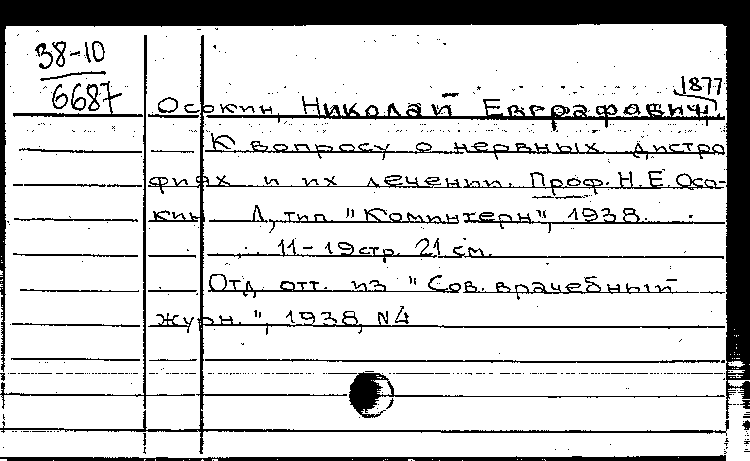 38-10
6687
1877
Осокин, Николай Евграфович.
К вопросу о нервных дистро
фиях и их лечении. Проф. Н. Е. Осо-
кин Л, тип. "Коминтерн", 1938.
11-19 стр. 21 см.
Отд. отт. из "Сов. врачебный
журн.", 1938, N4